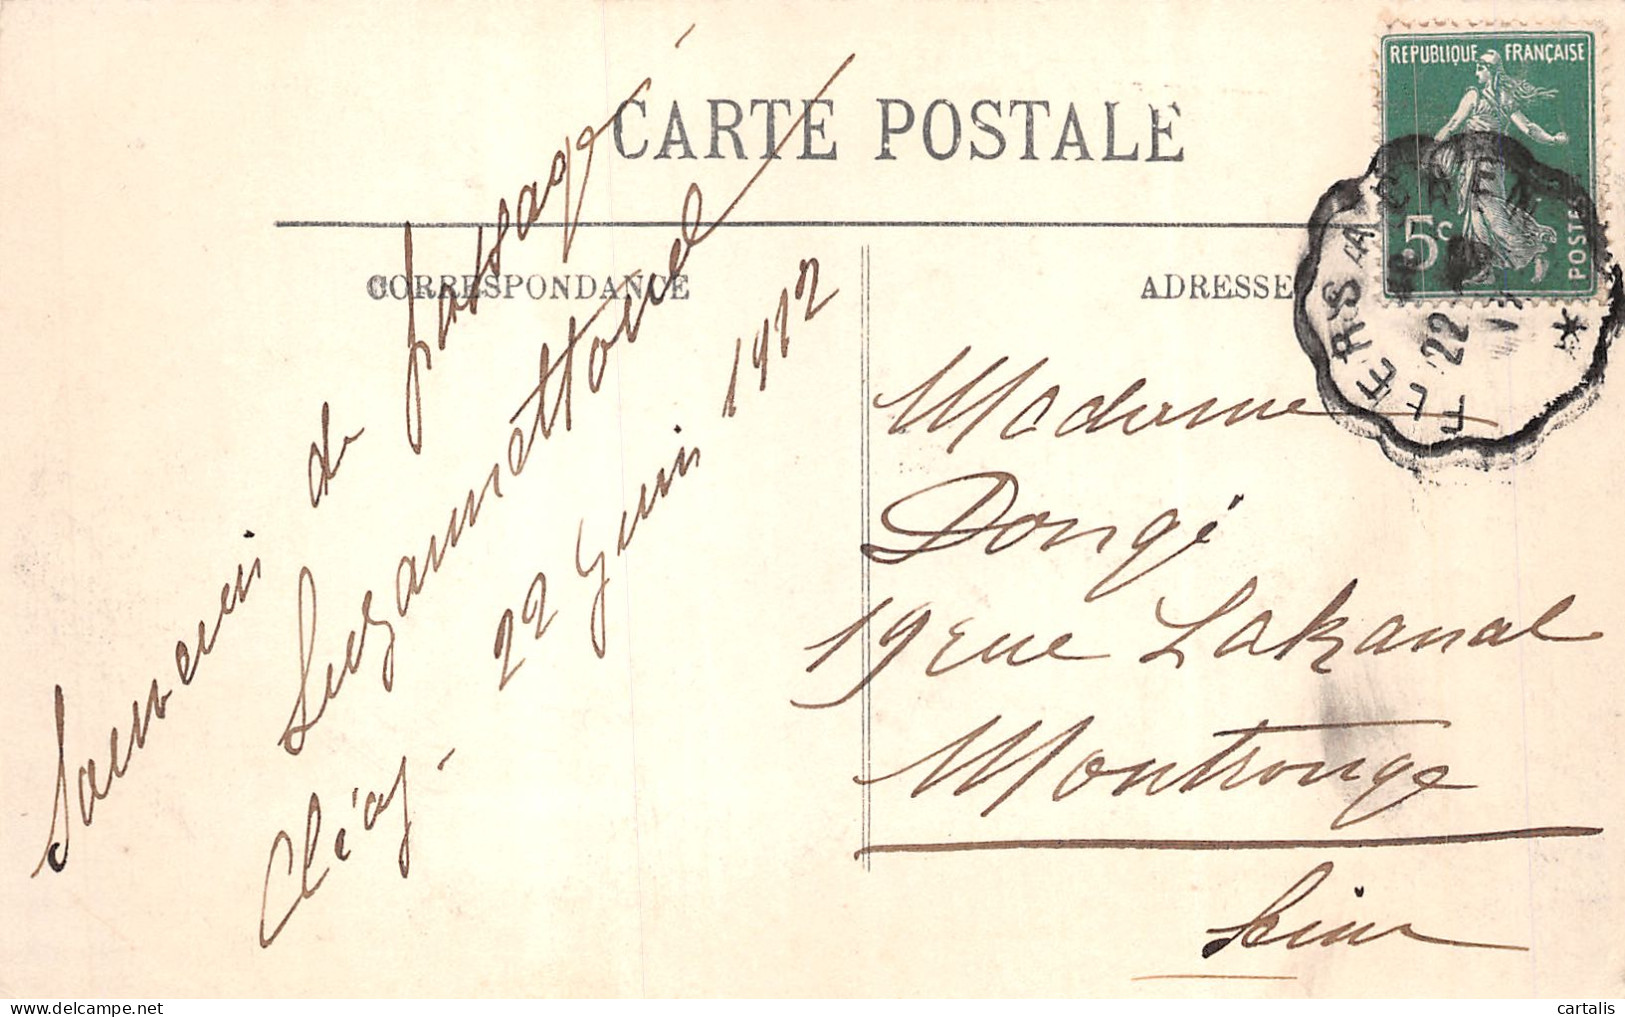 CARTE POSTALE
CORRESPONDANCE
ADRESSE
REPUBLIQUE FRANÇAISE
5c
POSTES
FLERS A CAEN
22
Souvenir de passage
22 Juin 1912
Madame
Dongé
19 rue Lakanal
Montrouge
Seine
cartalis